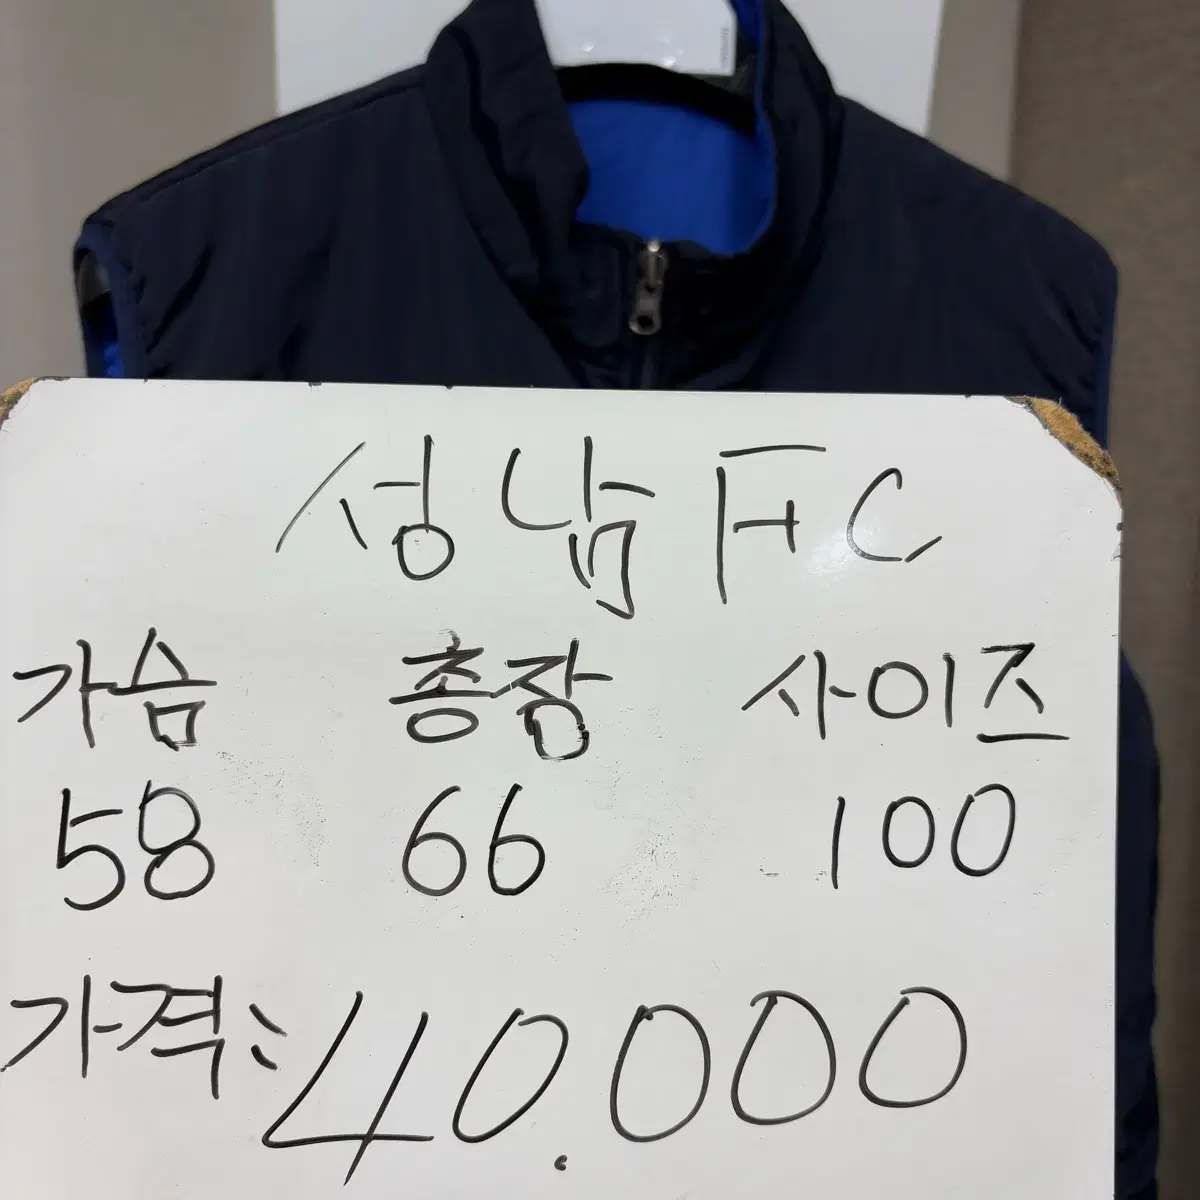 성남 FC
가슴 총장 사이즈
58 66 100
가격: 40.000